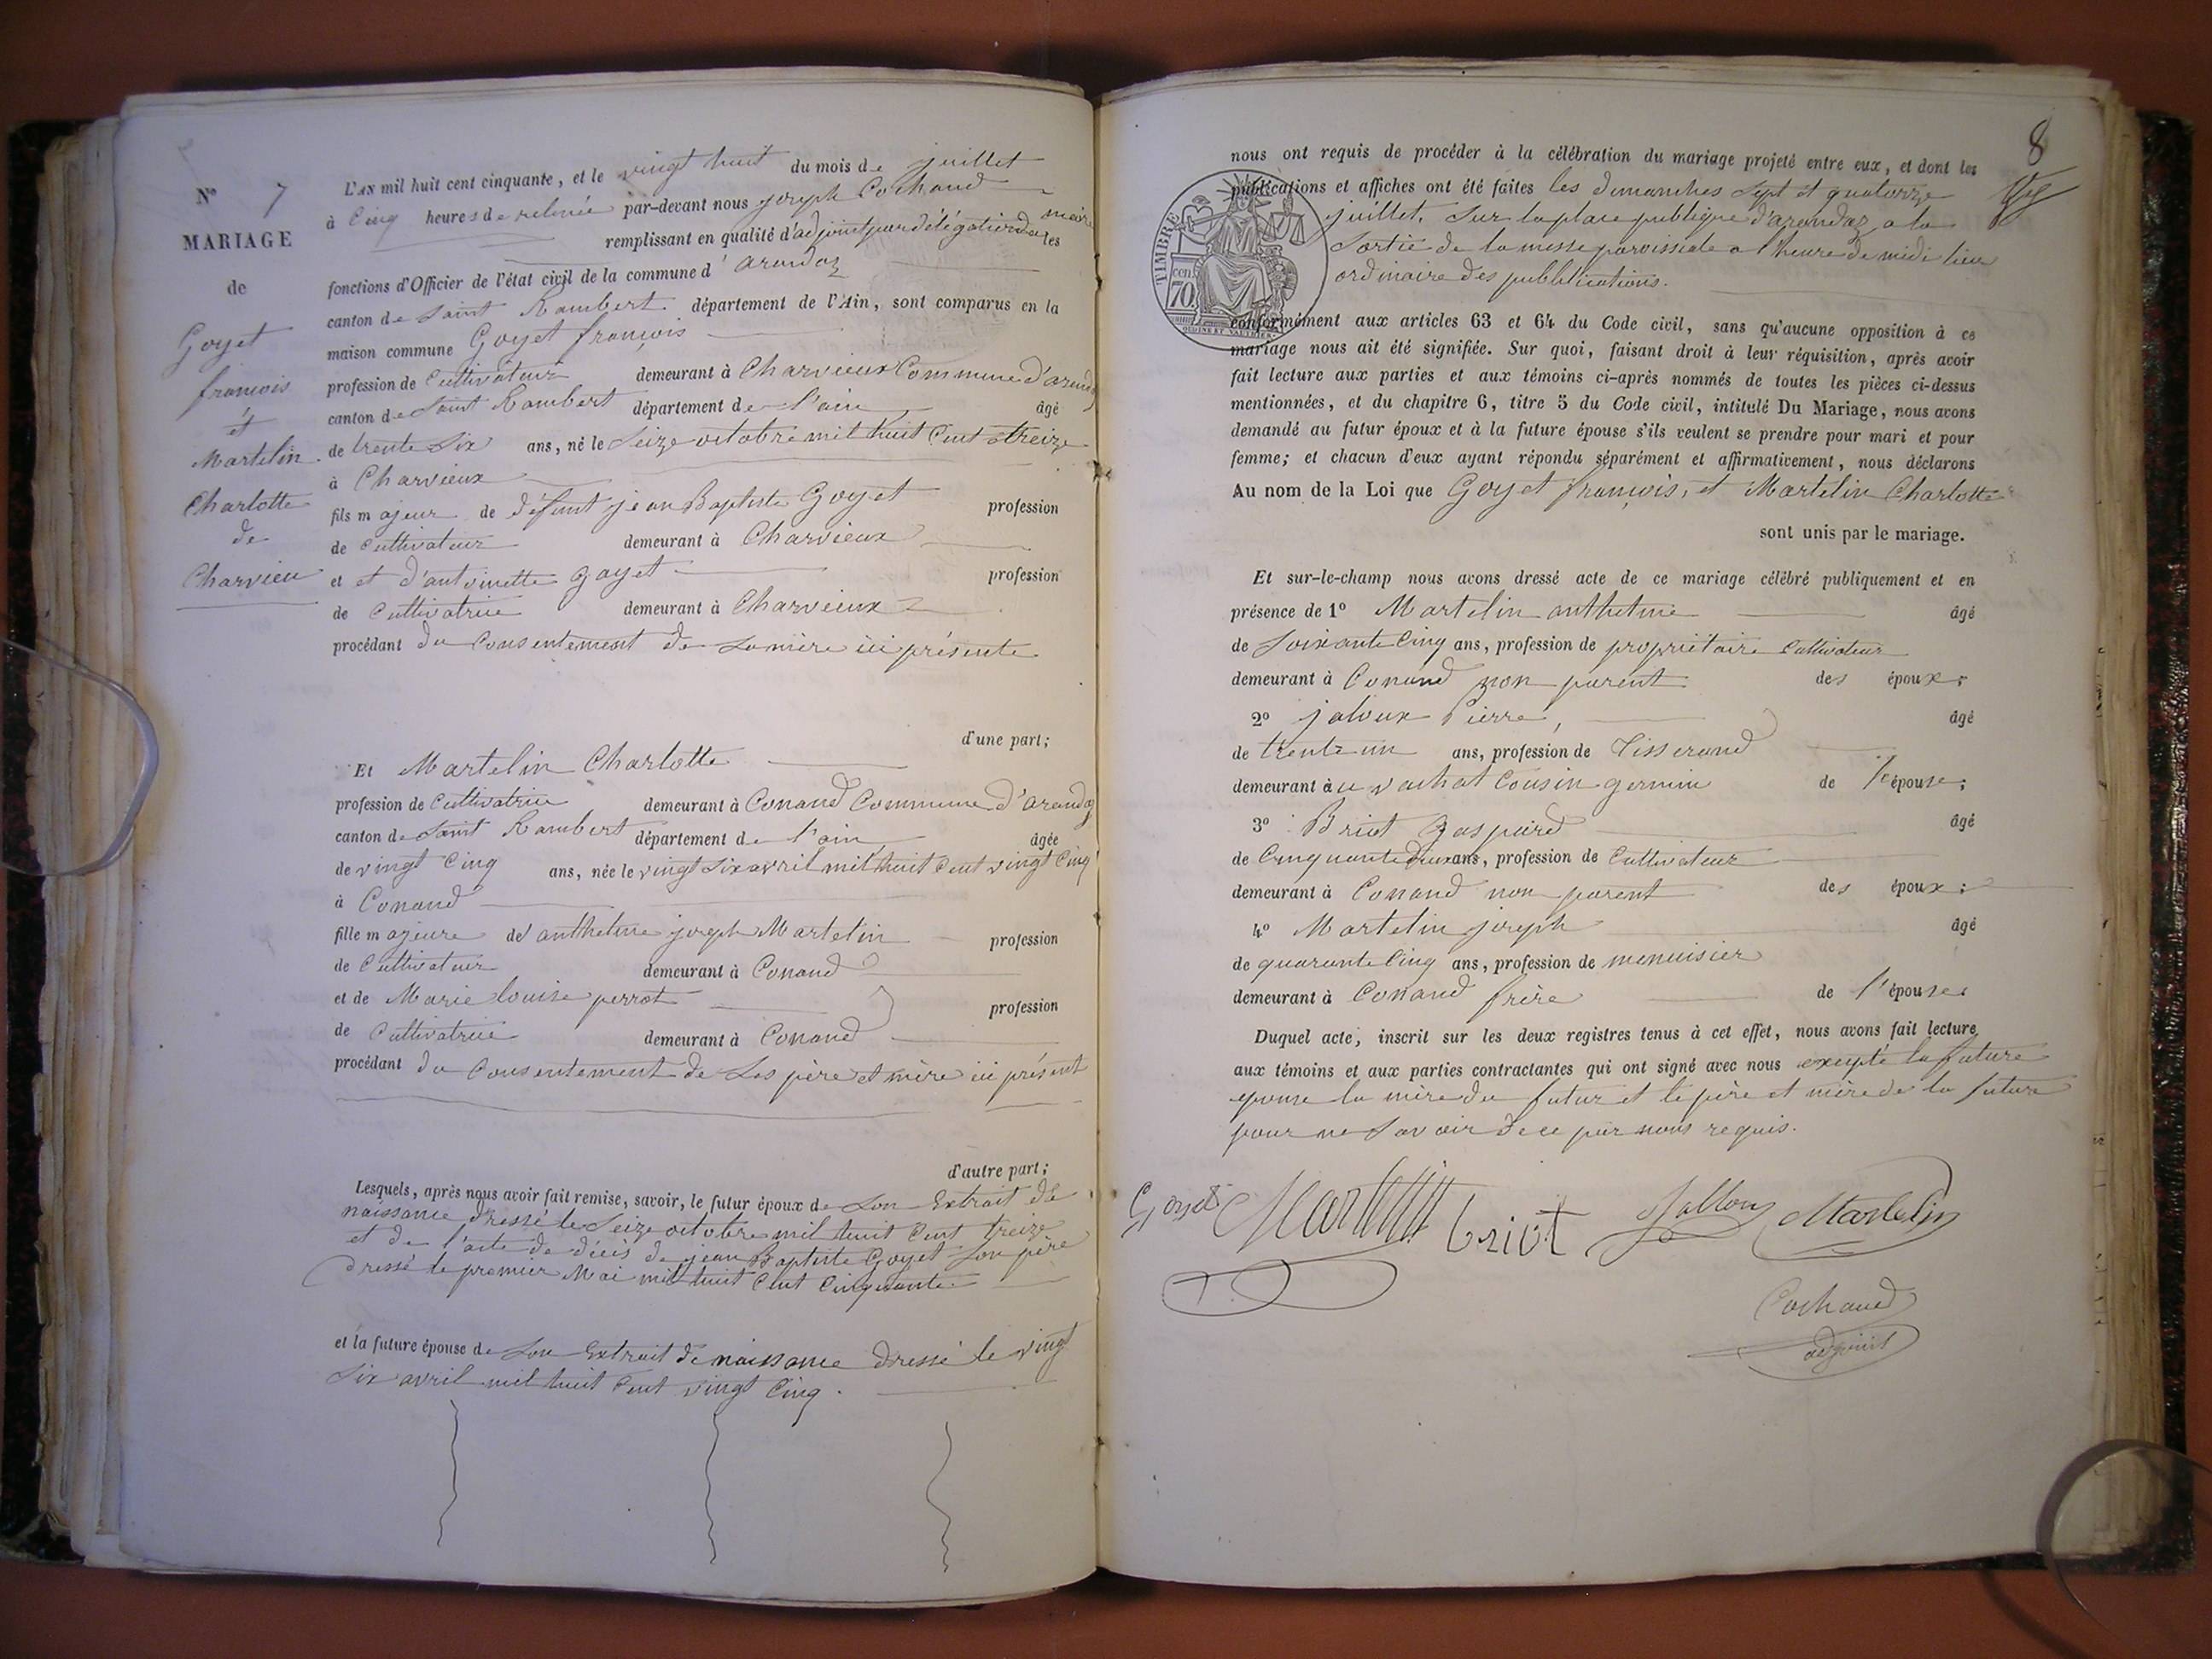 N° 7
MARIAGE
de
Goyet
françois
et
Martelin
Charlotte
de
Charvieu
L'AN mil huit cent cinquante, et le vingt huit du mois de juillet
à Cinq heures de relevée par-devant nous joseph Cochaud
remplissant en qualité d'adjoint par délégation du maire les
fonctions d'Officier de l'état civil de la commune d'arandaz
canton de Saint Rambert département de l'Ain, sont comparus en la
maison commune Goyet françois
profession de Cultivateur demeurant à Charvieux Commune d'arandaz
canton de Saint Rambert département de l'ain âgé
de trente Six ans, né le Seize octobre mil huit Cent treize
à Charvieux
fils majeur de défunt jean Baptiste Goyet profession
de Cultivateur demeurant à Charvieux
et et d'antoinette goyet profession
de Cultivatrice demeurant à Charvieux
procédant du Consentement de Sa mère ici présente
d'une part;
Et Martelin Charlotte
profession de Cultivatrice demeurant à Conand Commune d'arandaz
canton de Saint Rambert département de l'ain âgée
de vingt Cinq ans, née le vingt Six avril mil huit Cent vingt Cinq
à Conand
fille majeure de anthelme joseph Martelin profession
de Cultivateur demeurant à Conand
et de Marie louise perrot profession
de Cultivatrice demeurant à Conand
procédant du Consentement de Ses père et mère ici présent
d'autre part;
Lesquels, après nous avoir fait remise, savoir, le futur époux de Son Extrait de
naissance dressé le Seize octobre mil huit Cent treize
et de l'acte de décès de jean Baptiste Goyet Son père
dressé le premier Mai mil huit Cent Cinquante
et la future épouse de Son Extrait de naissance dressé le vingt
Six avril mil huit Cent vingt Cinq.
8
nous ont requis de procéder à la célébration du mariage projeté entre eux, et dont les
publications et affiches ont été faites les dimanches Sept et quatorze
juillet, Sur la place publique d'arandaz a la
Sortie de la messe paroissiale a l'heure de midi lieu
ordinaire des pubblications.
TIMBRE
70 cen.
conformément aux articles 63 et 64 du Code civil, sans qu'aucune opposition à ce
mariage nous ait été signifiée. Sur quoi, faisant droit à leur réquisition, après avoir
fait lecture aux parties et aux témoins ci-après nommés de toutes les pièces ci-dessus
mentionnées, et du chapitre 6, titre 5 du Code civil, intitulé Du Mariage, nous avons
demandé au futur époux et à la future épouse s'ils veulent se prendre pour mari et pour
femme; et chacun d'eux ayant répondu séparément et affirmativement, nous déclarons
Au nom de la Loi que Goyet françois, et Martelin Charlotte
sont unis par le mariage.
Et sur-le-champ nous avons dressé acte de ce mariage célébré publiquement et en
présence de 1° Martelin anthelme âgé
de Soixante Cinq ans, profession de propriétaire Cultivateur
demeurant à Conand non parent des époux;
2° jaloux Pierre, âgé
de trente un ans, profession de Tisserand
demeurant à Cousin germin de l'épouse;
3° Briot gaspard âgé
de Cinquante deux ans, profession de Cultivateur
demeurant à Conand non parent des époux;
4° Martelin joseph âgé
de quarante Cinq ans, profession de menuisier
demeurant à Conand frère de l'épouse
Duquel acte, inscrit sur les deux registres tenus à cet effet, nous avons fait lecture
aux témoins et aux parties contractantes qui ont signé avec nous excepté la future
epouse la mère du futur et le père et mère de la future
pour ne Savoir de ce par nous requis.
Goyet Martelin briot Jalloux Martelin
Cochaud
adjoint